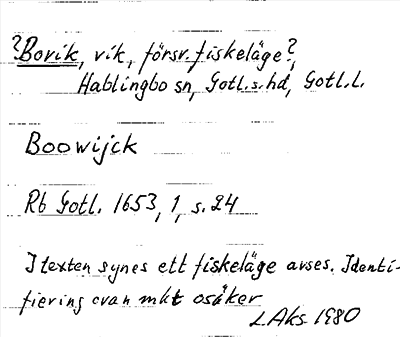 ?Bovik, vik, försv. fiskeläge?,
Hablingbo sn, Gotl.s.hd, Gotl.l.
Boowijck
Rb Gotl. 1653, 1, s. 24
I texten synes ett fiskeläge avses. Identi-
fiering ovan mkt osäker
LAks 1980